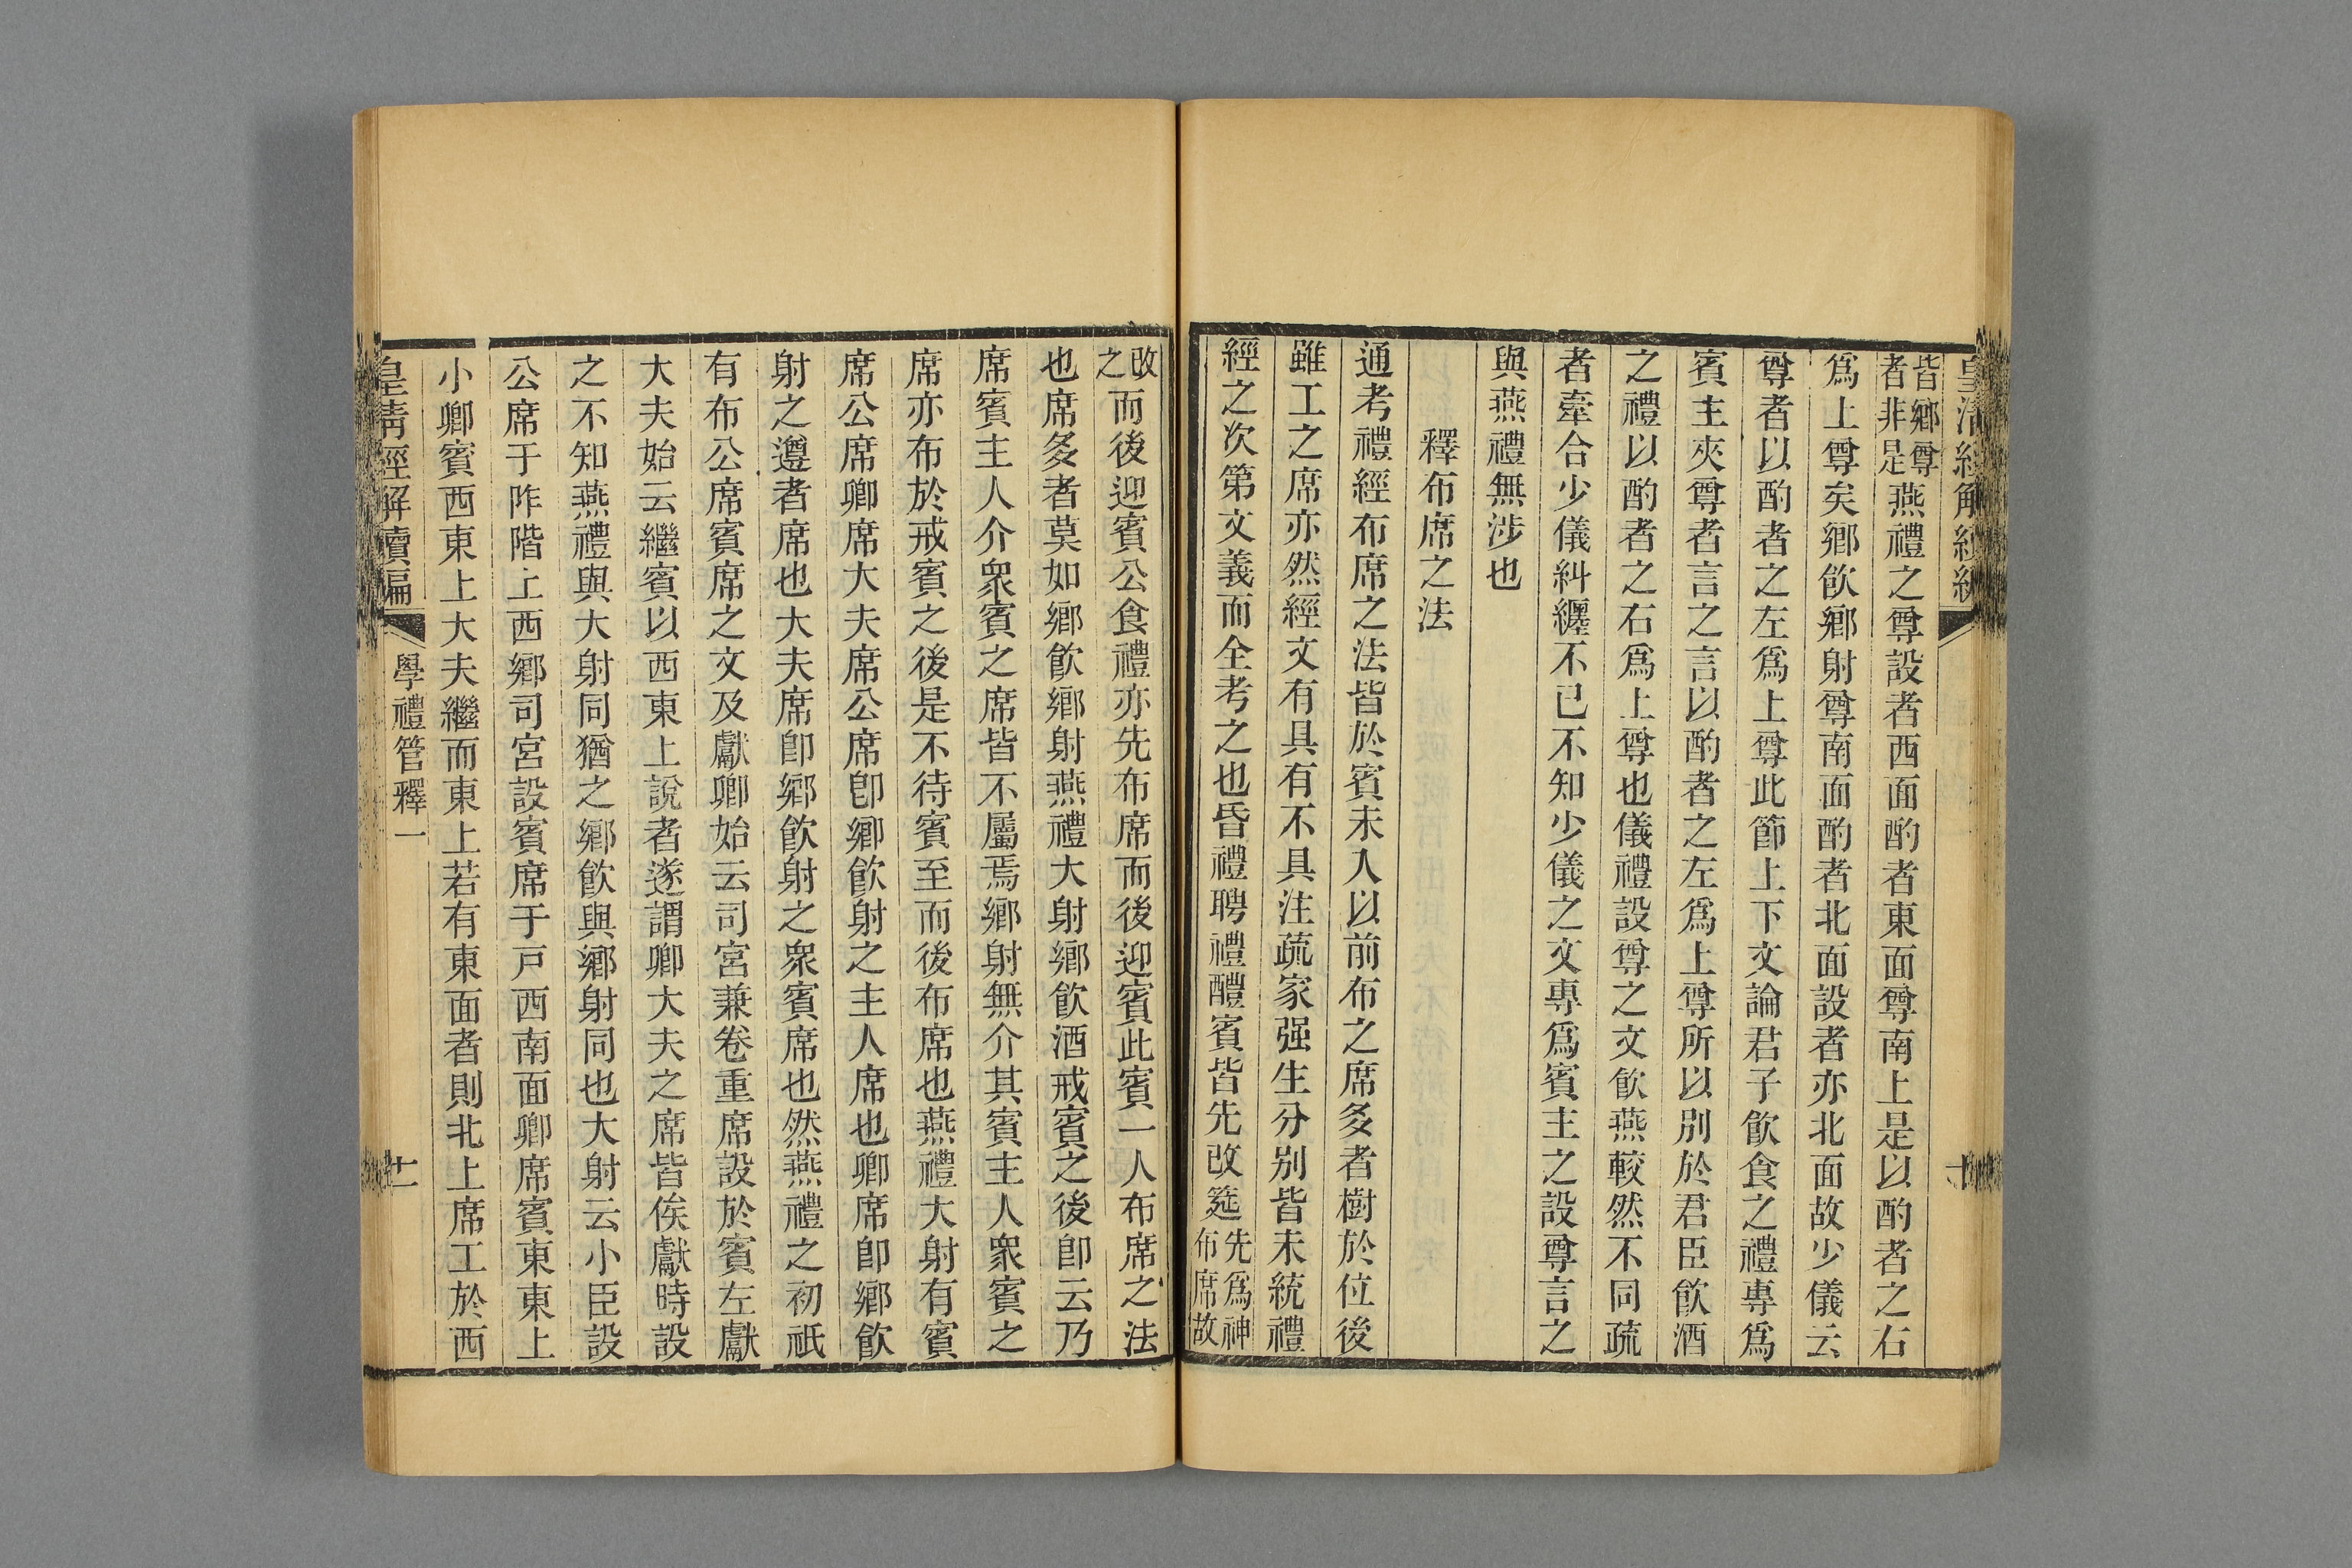 皆鄉尊者非是燕禮之尊設者西面酌者東面尊南上是以酌者之右
爲上尊矣鄉飮鄉射尊南面酌者北面設者亦北面故少儀云
尊者以酌者之左爲上尊此節上下文論君子飮食之禮專爲
賓主夾尊者言之言以酌者之左爲上尊所以別於君臣飮酒
之禮以酌者之右爲上尊也儀禮設尊之文飮燕較然不同疏
者牽合少儀糾纏不已不知少儀之文專爲賓主之設尊言之
與燕禮無涉也
釋布席之法
通考禮經布席之法皆於賓未入以前布之席多者樹於位後
雖工之席亦然經文有具有不具注疏家强生分別皆未統禮
經之次第文義而全考之也昏禮聘禮醴賓皆先改筵先爲神布席故
改之而後迎賓公食禮亦先布席而後迎賓此賓一人布席之法
也席多者莫如鄉飮鄉射燕禮大射鄉飮酒戒賓之後卽云乃
席賓主人介衆賓之席皆不屬焉鄉射無介其賓主人衆賓之
席亦布於戒賓之後是不待賓至而後布席也燕禮大射有賓
席公席卿席大夫席公席卽鄉飮射之主人席也卿席卽鄉飮
射之遵者席也大夫席卽鄉飮射之衆賓席也然燕禮之初祇
有布公席賓席之文及獻卿始云司宮兼卷重席設於賓左獻
大夫始云繼賓以西東上說者遂謂卿大夫之席皆俟獻時設
之不知燕禮與大射同猶之鄉飮與鄉射同也大射云小臣設
公席于阼階上西鄉司宮設賓席于戶西南面卿席賓東東上
小卿賓西東上大夫繼而東上若有東面者則北上席工於西
皇清經解續編
學禮管釋一
十一